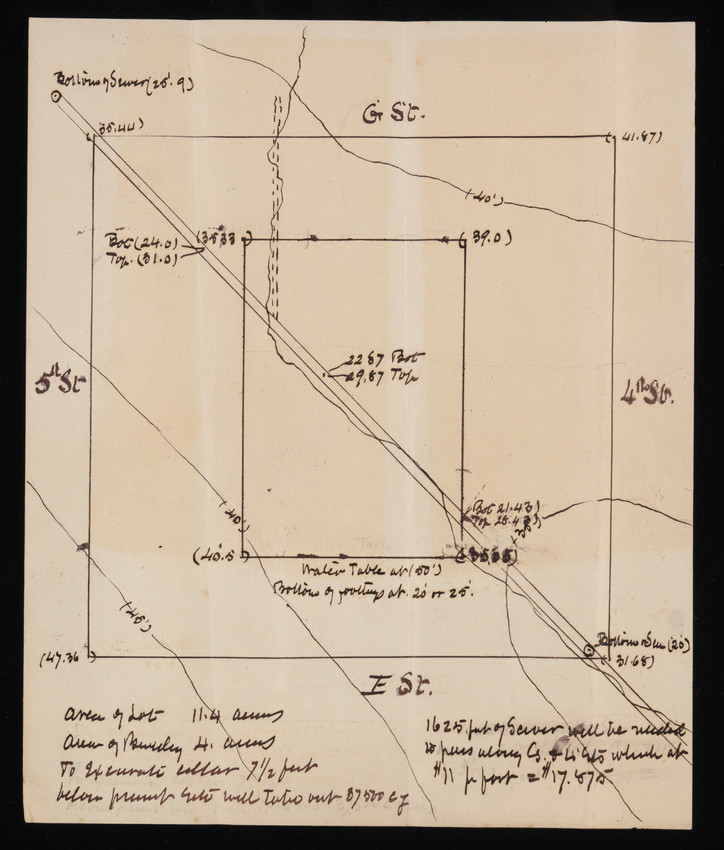 Bottom of Sewer (25'.9)
G St.
35.44)
41.87)
(40')
Bot (24.0)
Top. (31.0)
39.0)
22 87 Bot
29.87 Top
5th St
4th St.
(Bot 21.43)
Top 28.43)
(40')
(40.5
Water Table at (50')
Bottom of footings at. 20' or 25'.
(45')
Bottom Sew (20')
31.68)
(47.36
E St.
area of Lot 11.4 acres
Area of Building 4. acres
To Excavate cellar 7 1/2 feet
below present will take out 87500 cy
1625 feet of Sewer will be needed
to pass along G. & 4 Sts which at
$11 pr foot = $17.875